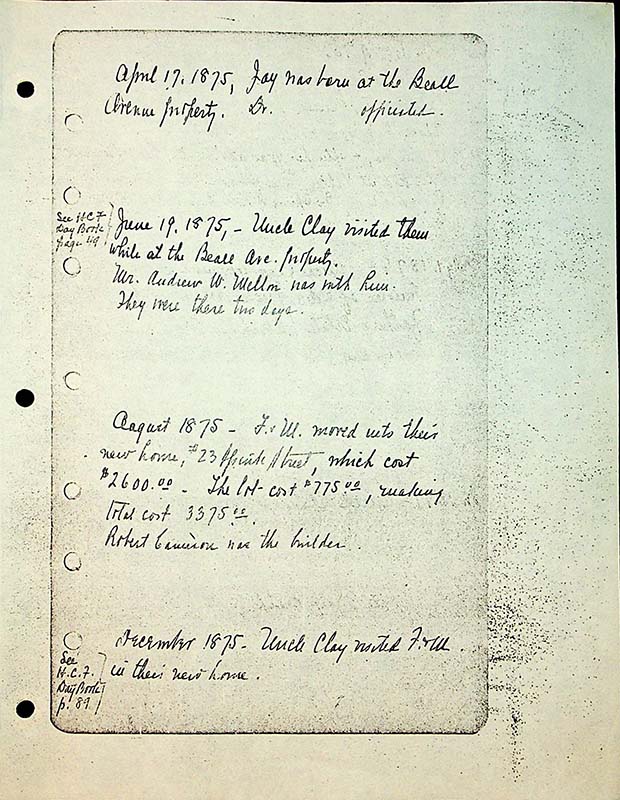 April 17, 1875, Jay was born at the Beall
Avenue property. Dr. officiated.
See H.C.F
Day Book
page 49
June 19, 1875, - Uncle Clay visited them
while at the Beall Ave. property.
Mr. Andrew W. Mellon was with him.
They were there two days.
August 1875 - F. & M. moved into their
new home, #23 Street, which cost
$2600.00 - The lot cost $775.00, making
Total cost 3375.00.
Robert Cameron was the builder.
See
H.C.F.
Day Book
p. 89
December 1875 - Uncle Clay visited F. & M.
in their new home.